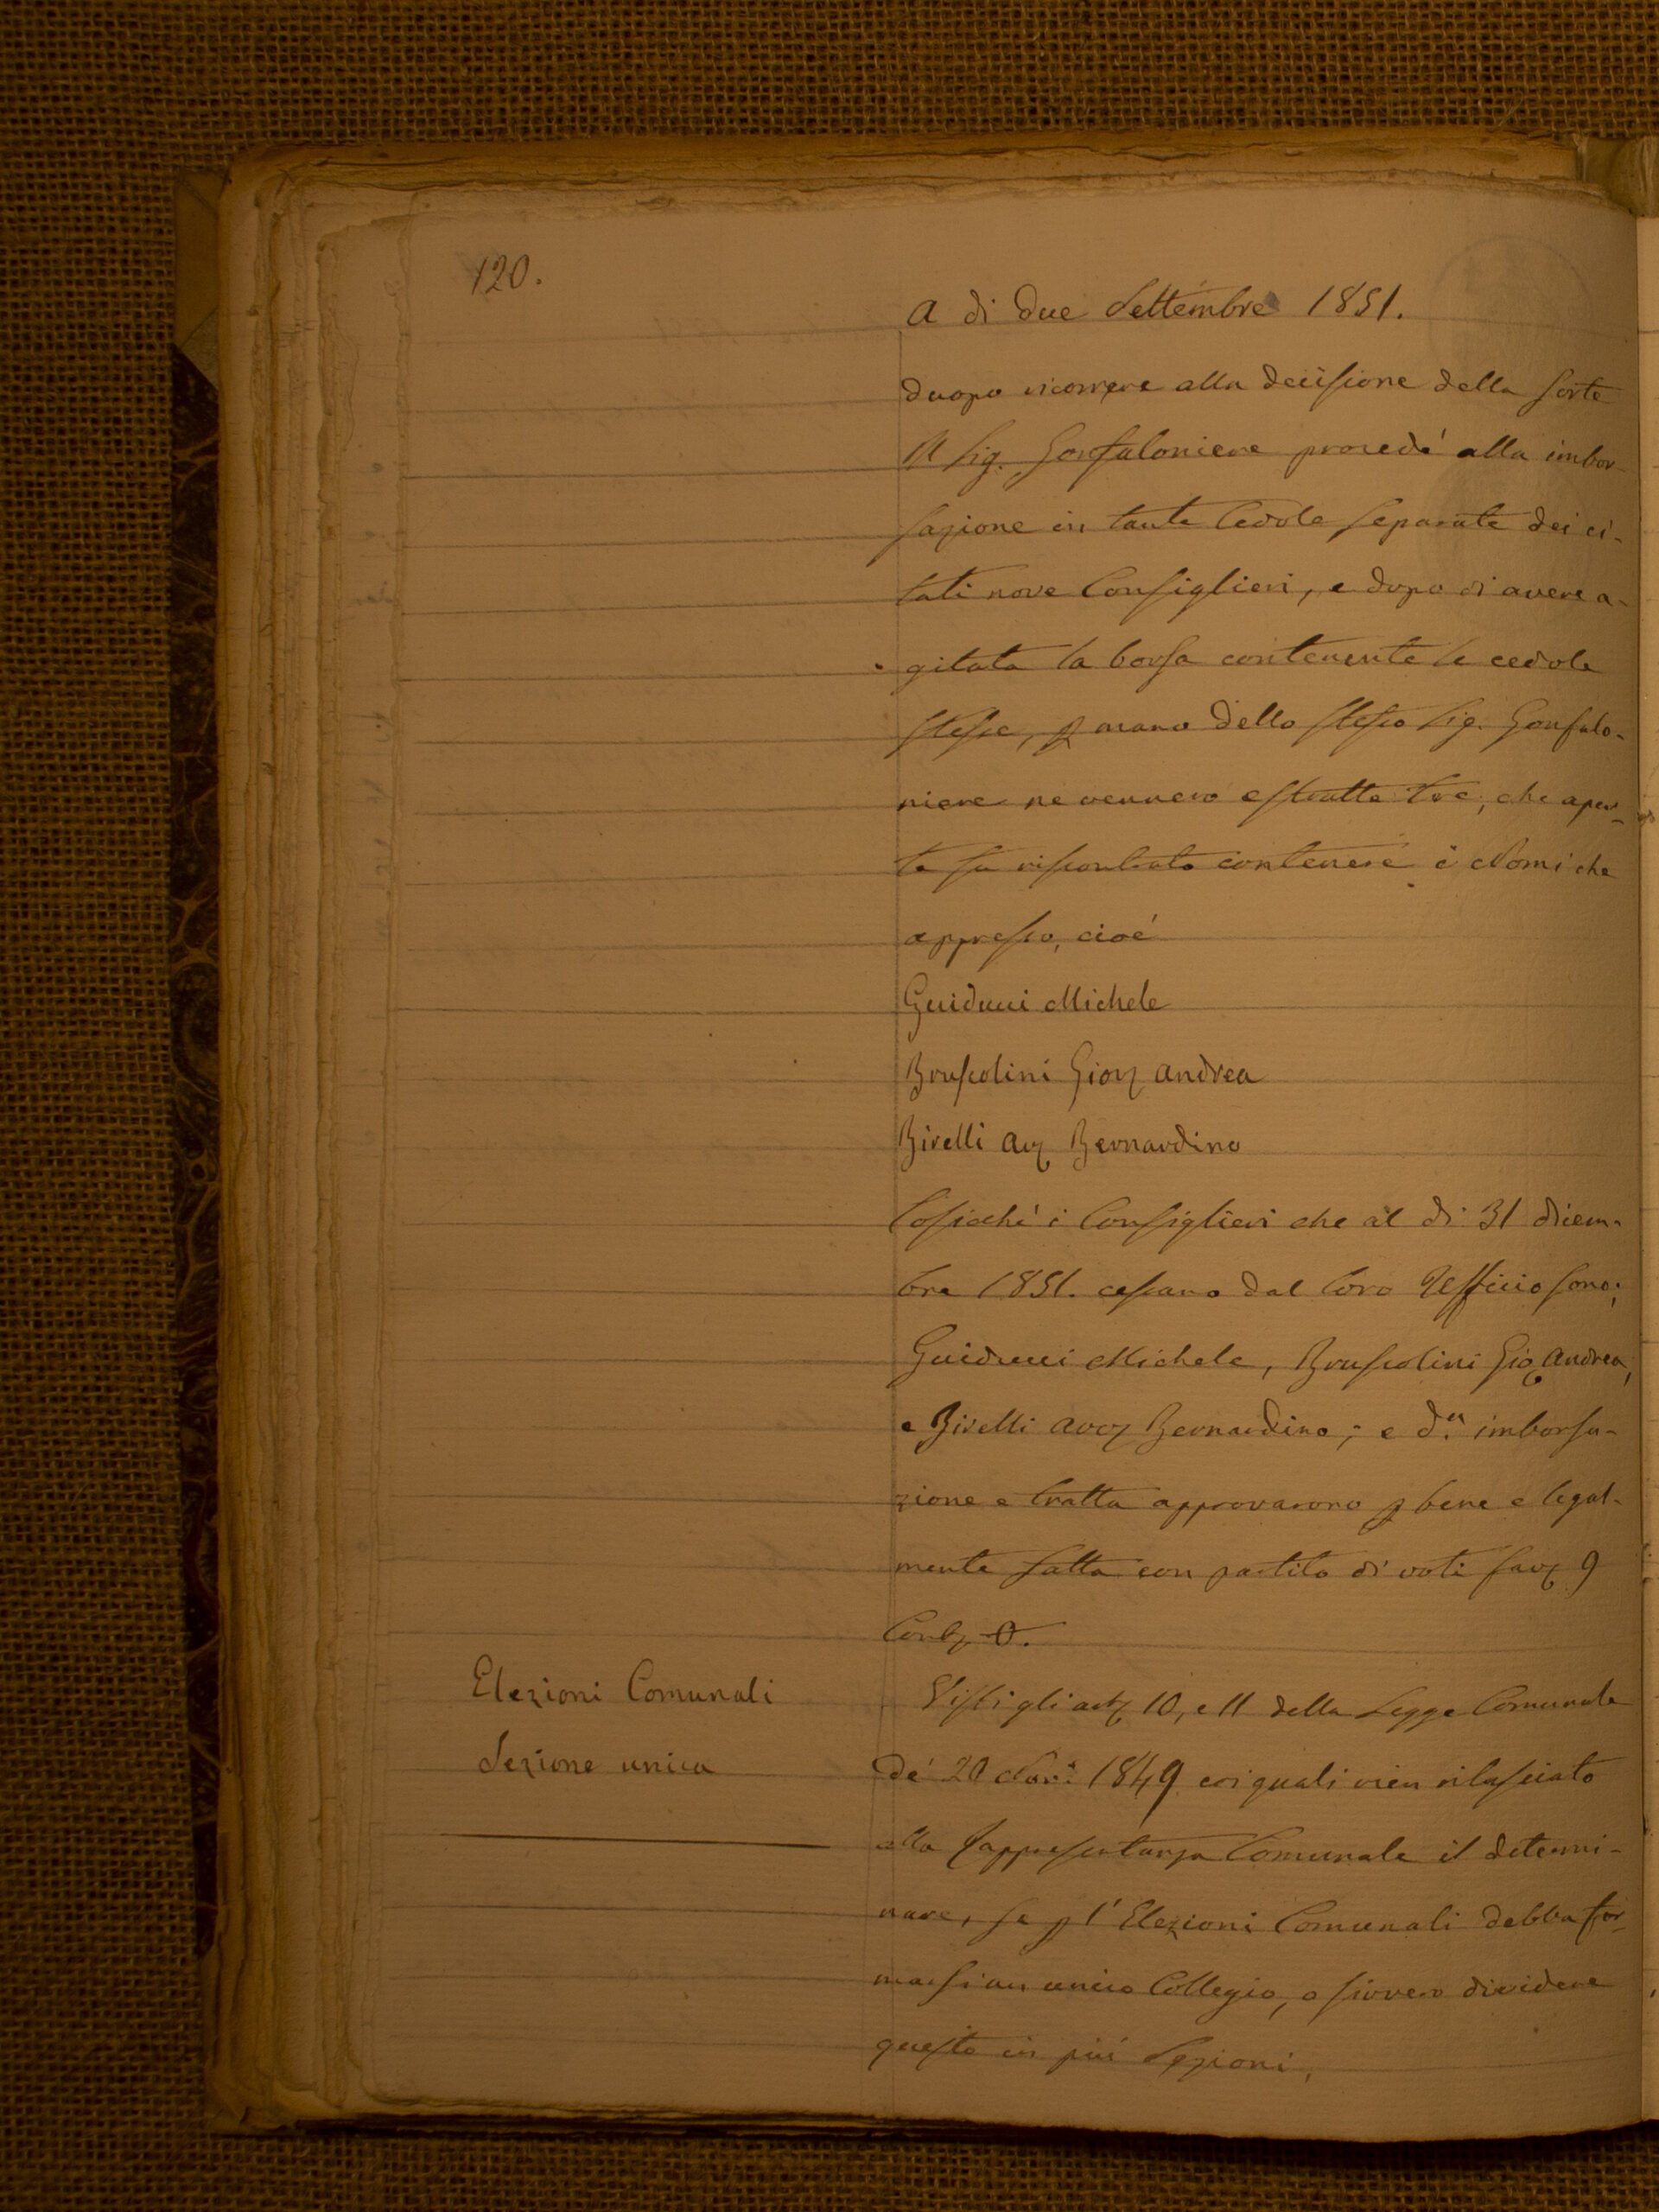 120.
A dì due Settembre 1851.
duopo ricorrere alla decisione della sorte
Il Sig. Gonfaloniere procedé alla imbor-
sazione in tante Cedole separate dei ci-
tati nove Consiglieri, e dopo di avere a-
gitata la borsa contenente le cedole
stesse, p mano dello stesso Sig. Gonfalo-
niere ne vennero estratte tre, che aper-
te fu riscontrato contenere i Nomi che
appresso, cioé
Guiducci Michele
Bruscolini Gioz Andrea
Birelli Avz Bernardino
Cosicché i Consiglieri che al dì 31 dicem-
bre 1851. cessano dal loro Ufficio sono:
Guiducci Michele, Bruscolini Gioz Andrea,
e Birelli Avvz Bernardino; e d.ta imborsa-
zione e tratta approvarono p bene e legal-
mente fatta con partito di voti favz 9
Contz 0.
Elezioni Comunali
Sezione unica
Visti gli artz 10, e 11 della Legge Comunale
de' 20 Nov.e 1849 coi quali vien rilasciato
alla Rappresentanza Comunale il determi-
nare, se p l'Elezioni Comunali debba for-
marsi un unico Collegio, o sivvero dividere
questo in più Sezioni,